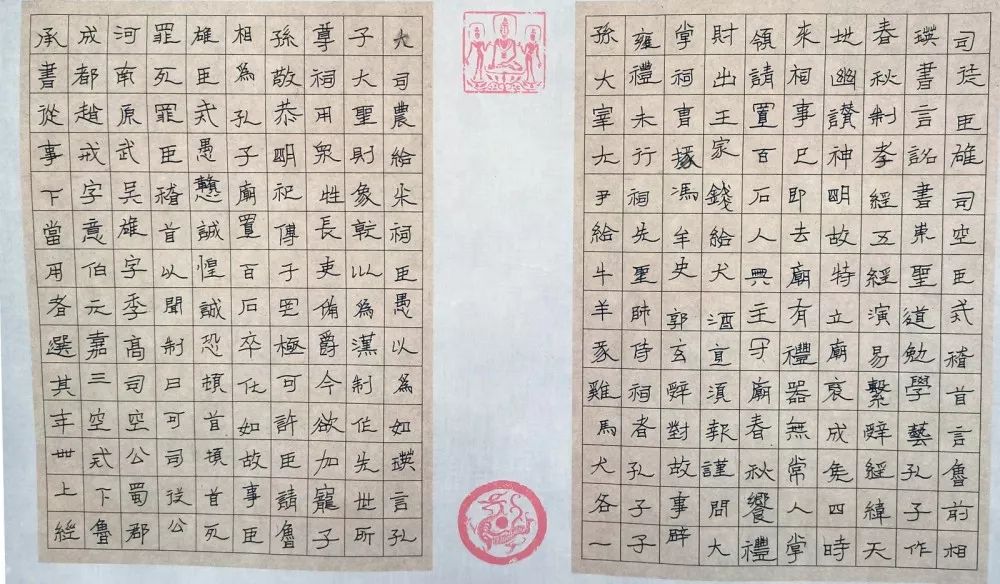 司徒臣雄司空臣戒稽首言魯前相
瑛書言詔書崇聖道勉學藝孔子作
春秋制孝經五經演易繫辭經緯天
地幽讃神明故特立廟褒成侯四時
來祠事已即去廟有禮器無常人掌
領請置百石人典主守廟春秋饗禮
財出王家錢給犬酒直須報謹問大
掌祠曹掾馮牟史郭玄辭對故事辟
雍禮未行祠先聖師侍祠者孔子子
孫大宰大尹給牛羊豕雞馬犬各一
大司農給米祠臣愚以為如瑛言孔
子大聖則象乾以為漢制作先世所
尊祠用衆牲長吏備爵今欲加寵子
孫敬恭明祀傳于罔極可許臣請魯
相為孔子廟置百石卒仕如故事臣
雄臣戒愚戇誠惶誠恐頓首頓首死
罪死罪臣稽首以聞制曰可司徒公
河南原武吳雄字季高司空公蜀郡
成都趙戒字意伯元嘉三空戒下魯
承書從事下當用者選其年卌上經